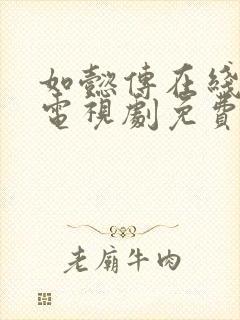 如懿傳在綫
電視劇免費
老廟牛肉